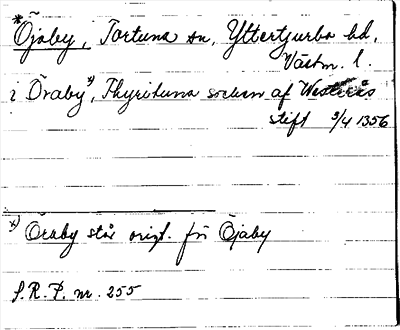 *Öjaby, Tortuna sn, Yttertjurbo hd,
Västm. l.
i Öraby*), Thyrituna socken af Westerås
stift 3/4 1356
*) Öraby står origt. för Öjaby
S.R.P. nr. 255